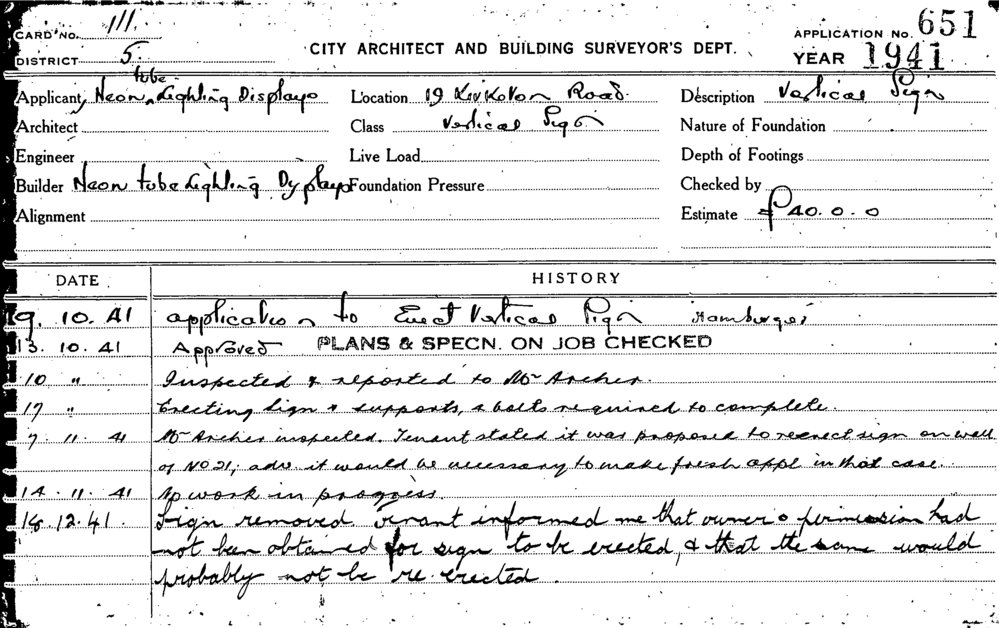 CARD NO. 111.
APPLICATION No. 651
DISTRICT 5.
CITY ARCHITECT AND BUILDING SURVEYOR'S DEPT.
YEAR 1941
Applicant Neon tube Lighting Displays Location 19 Road Description Vertical Sign
Architect Class Vertical Sign Nature of Foundation
Engineer Live Load Depth of Footings
Builder Neon tube Lighting Displays Foundation Pressure Checked by
Alignment Estimate £40.0.0
DATE HISTORY
9.10.41 application to Erect Vertical Sign Hamburger
13.10.41 Approved PLANS & SPECN. ON JOB CHECKED
10 " Inspected & reported to Mr Archer.
17 " Erecting sign & supports, & bolts required to complete.
7.11.41 Mr Archer inspected. Tenant stated it was proposed to reerect sign on wall
of No 21, adv. it would be necessary to make fresh appl in that case.
14.11.41 No work in progress.
18.12.41. Sign removed. Tenant informed me that owner's permission had
not been obtained for sign to be erected, & that the same would
probably not be re-erected.